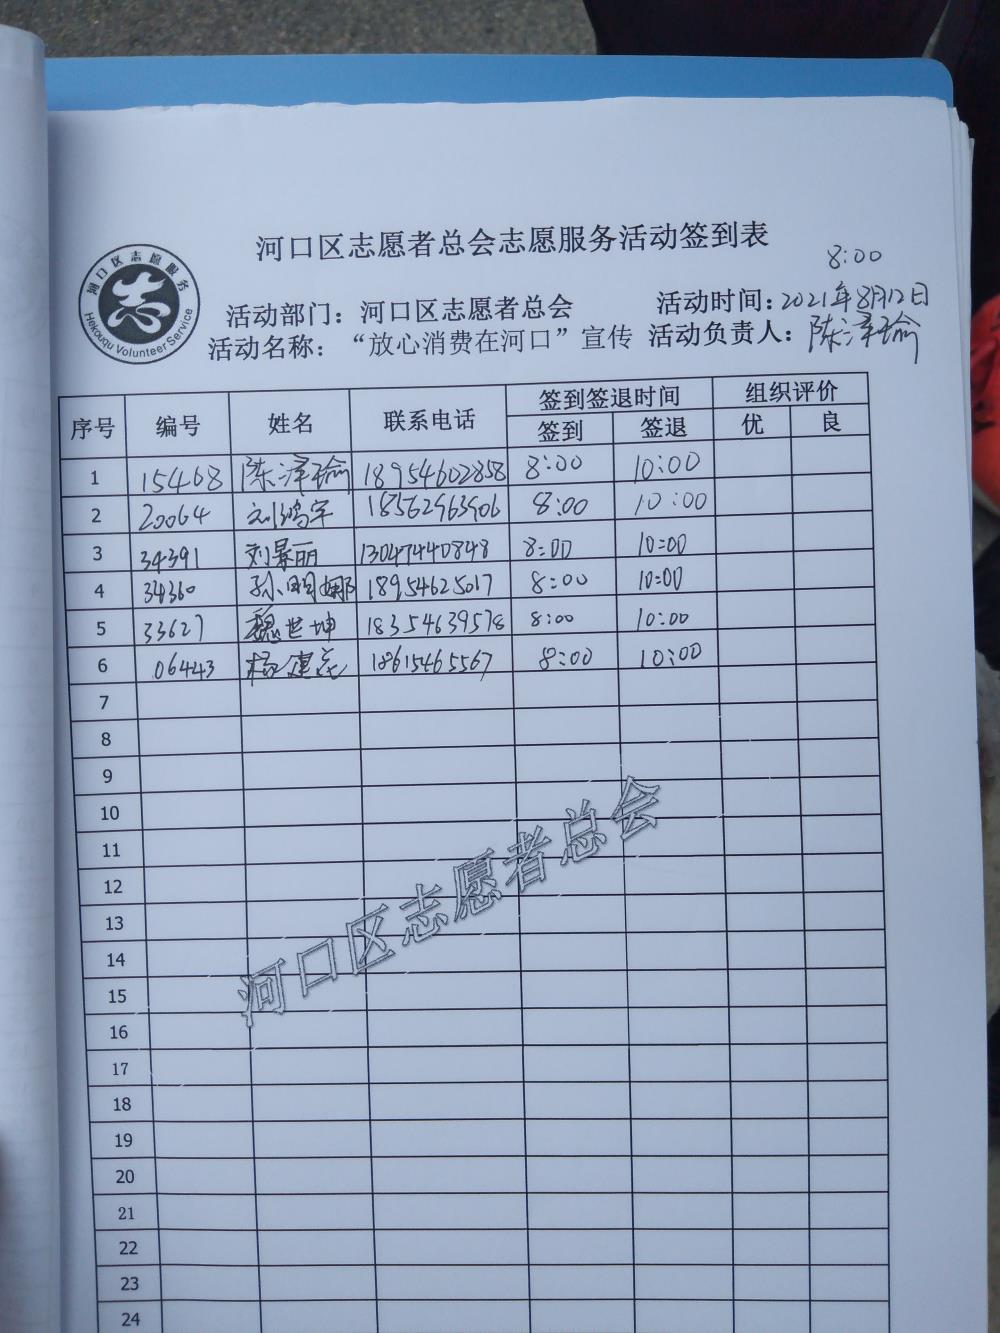 河口区志愿者总会志愿服务活动签到表
8:00
河口区志愿服务
志
Hekouqu Volunteer Service
活动部门：河口区志愿者总会 活动时间：2021年8月12日
活动名称：“放心消费在河口”宣传 活动负责人：陈泽瑜
序号 编号 姓名 联系电话 签到签退时间 组织评价
签到 签退 优 良
1 15468 陈泽瑜 18954602858 8:00 10:00
2 20064 刘鸿宇 18562963906 8:00 10:00
3 34391 刘景丽 13047440848 8:00 10:00
4 34360 孙明娜 18954625017 8:00 10:00
5 33627 魏世坤 18354639578 8:00 10:00
6 06443 杨建 18615465567 8:00 10:00
7
8
9
10
11
12
13
14
15
16
17
18
19
20
21
22
23
24
河口区志愿者总会